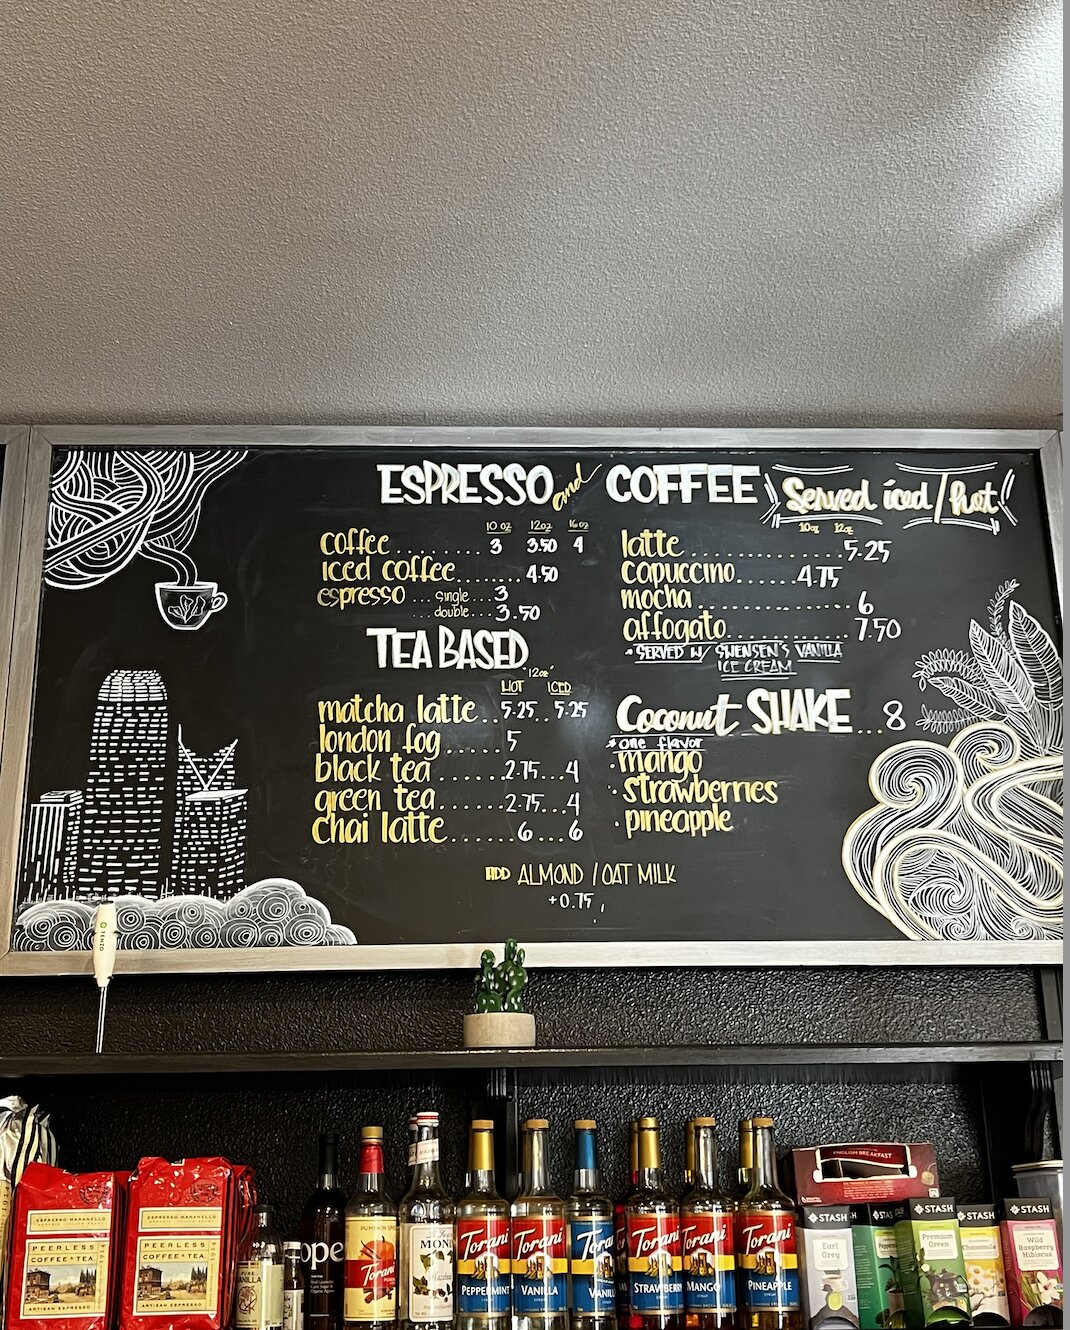 ESPRESSO and COFFEE
Served iced/hot
10 oz 12oz 16 oz
coffee ........ 3 3.50 4
iced coffee........ 4.50
espresso ... single...3
double...3.50
10oz 12oz
latte ................5.25
capuccino......4.75
mocha ................6
affogato............7.50
*SERVED W/ SWENSEN'S VANILLA
ICE CREAM
TEA BASED
12oz
HOT ICED
matcha latte..5.25..5.25
london fog.....5
black tea ......2.75...4
green tea......2.75...4
chai latte.......6...6
Coconut SHAKE...8
*one flavor
·mango
·strawberries
·pineapple
ADD ALMOND / OAT MILK
+0.75
TENZO
ESPRESSO MARANELLO
PEERLESS
COFFEE & TEA
ARTISAN ESPRESSO
ESPRESSO MARANELLO
PEERLESS
COFFEE & TEA
ARTISAN ESPRESSO
VANILLA
ope
PUMPKIN
Torani
MONI
Torani
PEPPERMINT
Torani
VANILLA
Torani
VANILL
Torani
STRAWBERR
Torani
MANGO
Torani
PINEAPPLE
ENGLISH BREAKFAST
STASH
Earl
Grey
STASH
STASH
Premium
Green
STASH
Chamomile
STASH
Wild
Raspberry
Hibiscus